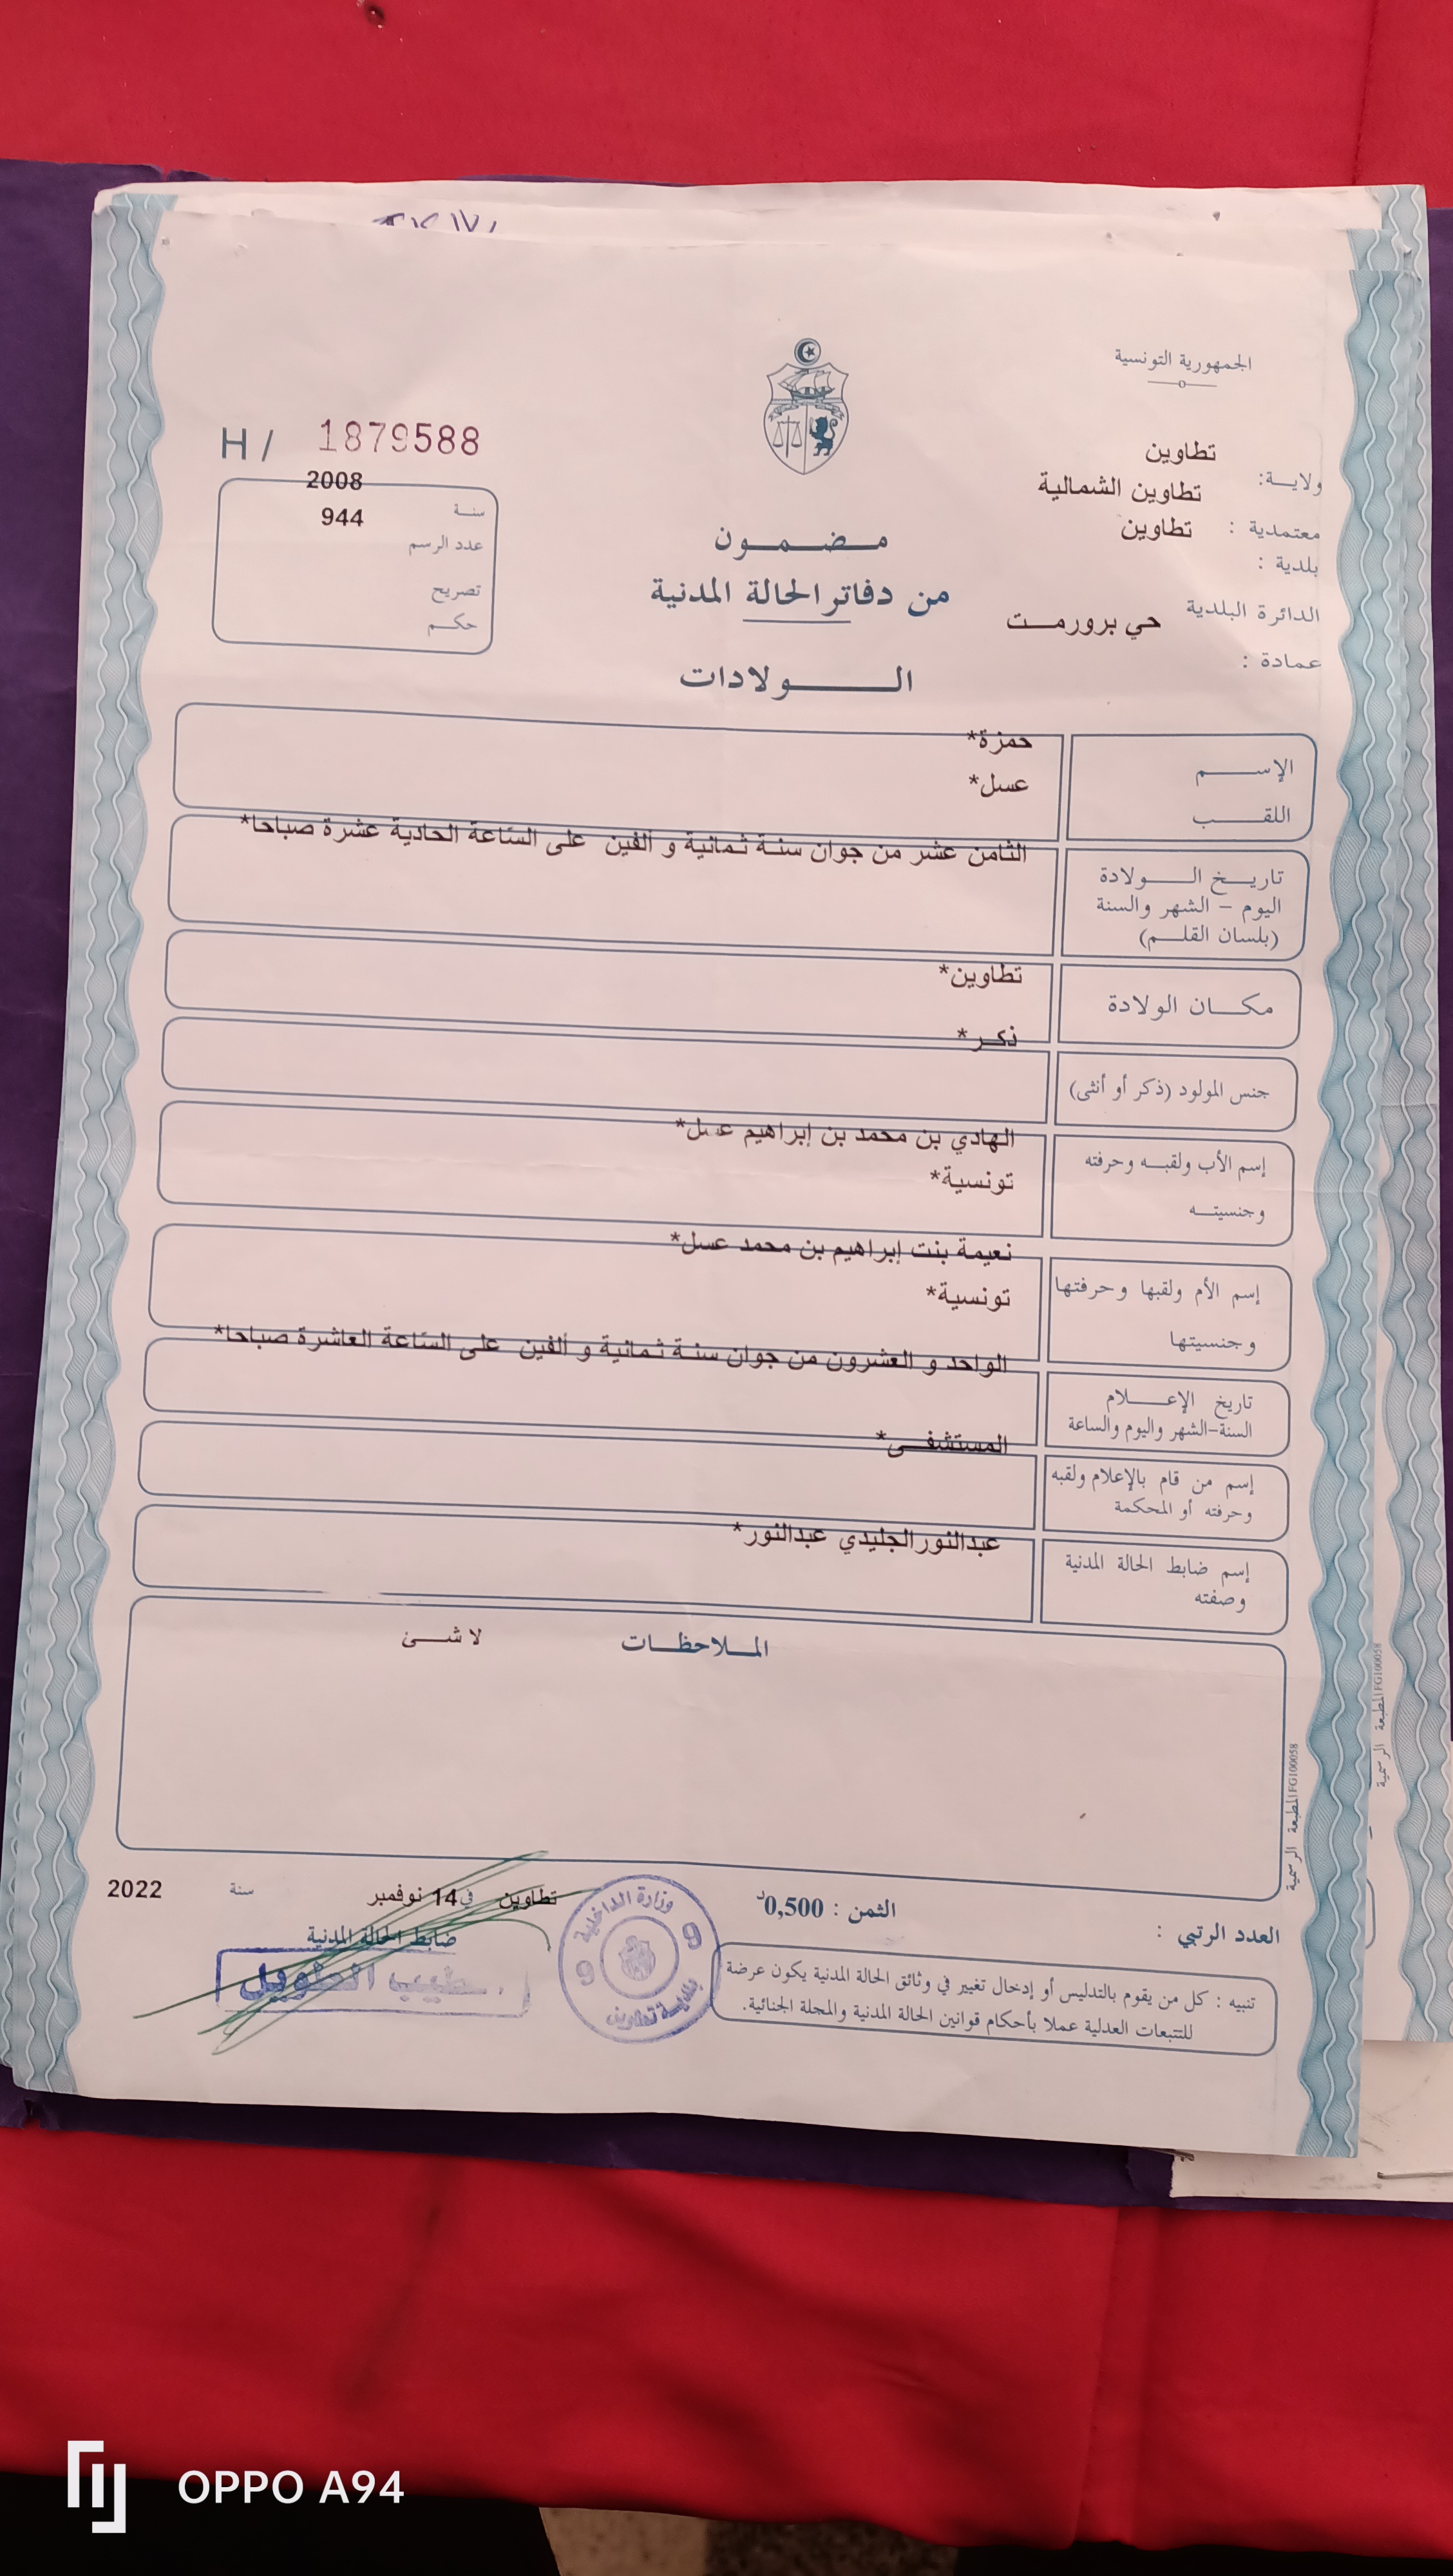 الجمهورية التونسية
H / 1879588
ولايـــة: تطاوين
معتمدية : تطاوين الشمالية
بلدية : تطاوين
الدائرة البلدية حي برورمـــت
عمادة :
سنــة 2008
عدد الرسم 944
تصريح
حكــم
مــضــمــون
من دفاتر الحالة المدنية
الـــــولادات
الإســــــم حمزة*
اللقـــــب عسل*
تاريـــخ الـــــولادة
اليوم – الشهر والسنة
(بلسان القلـــم)
الثامن عشر من جوان سنـة ثـمانية و ألفين على السّاعة الحادية عشرة صباحا*
مكــــان الولادة تطاوين*
جنس المولود (ذكر أو أنثى) ذكــر*
إسم الأب ولقبــه وحرفته الهادي بن محمد بن إبراهيم عسل*
وجنسيتـــه تونسية*
إسم الأم ولقبها وحرفتها نعيمة بنت إبراهيم بن محمد عسل*
وجنسيتها تونسية*
تاريخ الإعـــــلام
السنة-الشهر واليوم والساعة
الواحد و العشرون من جوان سنـة ثـمانية و ألفين على السّاعة العاشرة صباحا*
إسم من قام بالإعلام ولقبه
وحرفته أو المحكمة
المستشفــى*
إسم ضابط الحالة المدنية
وصفته
عبدالنورالجليدي عبدالنور*
المــلاحظــات لا شـــئ
المطبعة الرسمية FG100058
المطبعة الرسمية FG100058
تطاوين في 14 نوفمبر سنة 2022
ضابط الحالة المدنية
الطويل
وزارة الداخلية
9 9
بلدية تطاوين
الثمن : 0,500د
العدد الرتبي :
تنبيه : كل من يقوم بالتدليس أو إدخال تغيير في وثائق الحالة المدنية يكون عرضة
للتتبعات العدلية عملا بأحكام قوانين الحالة المدنية والمجلة الجنائية.
OPPO A94